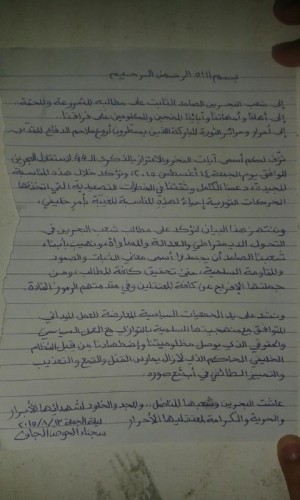 بسم الله الرحمن الرحيم
إلى شعب البحرين الصامد الثابت على مطالبه المشروعة والمحقة..
إلى أهلنا وأمهاتنا وآبائنا المحبين والمكلومين على فراقنا..
إلى أحرار وحرائر الثورة المباركة الذين يسطرون أروع ملاحم الدفاع المقدس..
نزف لكم أسمى آيات الفخر والاعتزاز بالذكرى الـ44 لاستقلال البحرين
الموافق يوم الجمعة 14 أغسطس 2015، ونؤكد خلال هذه المناسبة
المجيدة دعمنا الكامل وثقتنا في الفعاليات التصعيدية التي اتخذتها
الحركات الثورية إحياءً لهذه المناسبة المغيبة بأمر خليفي.
ونختصر هذا البيان لنؤكد على مطالب شعب البحرين في
التحول الديمقراطي والعدالة والمساواة، ونهيب بأبناء
شعبنا الصامد أن يجسدوا أسمى معاني الثبات والصمود
والمقاومة السلمية، حتى تحقيق كافة المطالب ومن
جملتها الإفراج عن كافة المعتقلين وفي مقدمتهم الرموز القادة.
ونشد على يد الجمعيات السياسية المعارضة العمل الميداني
المتوافق مع منهجيتها السلمية بالتوازي مع العمل السياسي
والحقوقي الذي يوصل مظلوميتنا واضطهادنا من قبل النظام
الخليفي الحاكم الذي لازال يمارس القتل والقمع والتعذيب
والتمييز الطائفي في أبشع صوره.
عاشت البحرين وشعبها المناضل.. والمجد والخلود لشهدائنا الأبرار
والحرية والكرامة لمعتقلينا الأحرار
ليلة الجمعة 13/8/2015
سجناء الحوض الجاف